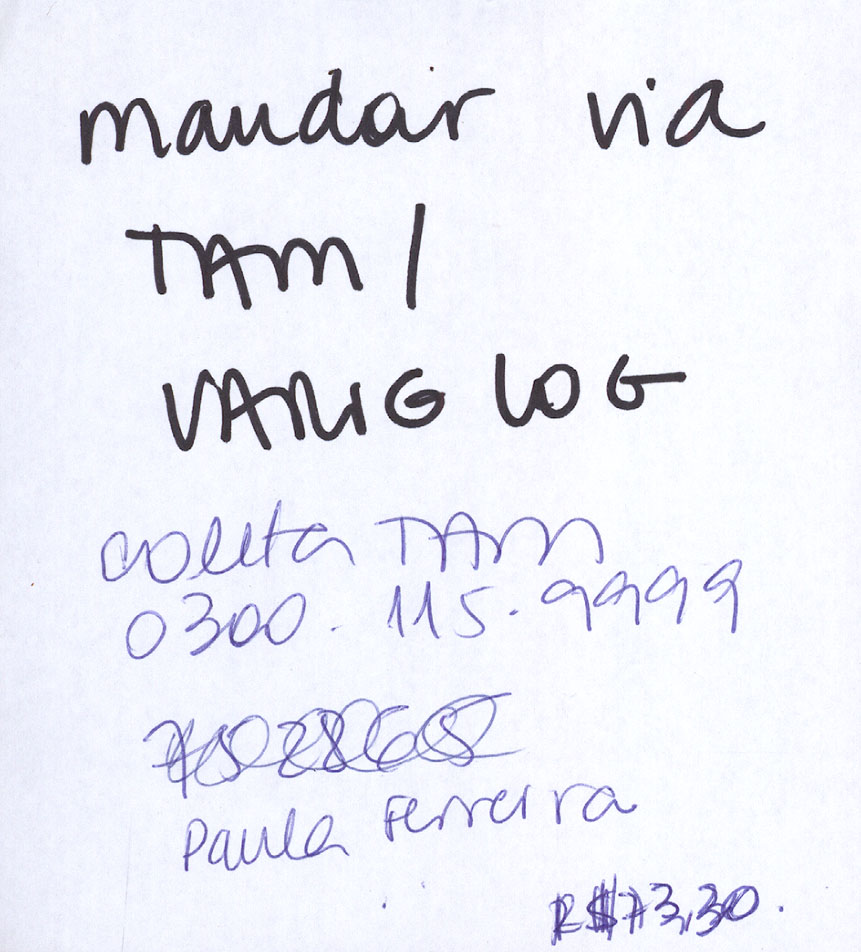 mandar via
TAM /
VARIG LOG
coleta TAM
0300. 115. 9999
Paula Ferreira
R$73,30.